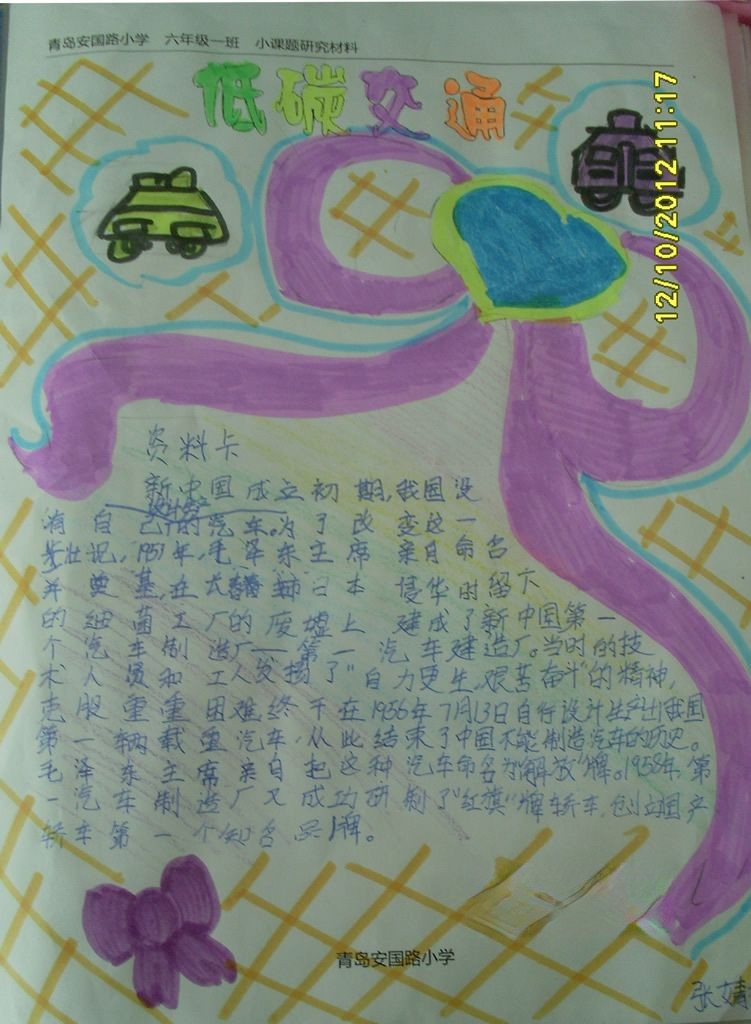 青岛安国路小学 六年级一班 小课题研究材料
低碳交通
12/10/2012 11:17
资料卡
新中国成立初期,我国没
有自己的汽车。为了改变这一
状况,1953年,毛泽东主席亲自命名
并奠基,在日本侵华时留下
的细菌工厂的废墟上建成了新中国第一
个汽车制造厂——第一汽车建造厂。当时的技
术人员和工人发扬了"自力更生,艰苦奋斗"的精神,
克服重重困难终于在1956年7月13日自行设计生产出我国
第一辆载重汽车,从此结束了中国不能制造汽车的历史。
毛泽东主席亲自把这种汽车命名为"解放"牌。1958年,第
一汽车制造厂又成功研制了"红旗"牌轿车,创立国产
轿车第一个知名品牌。
青岛安国路小学
张婧